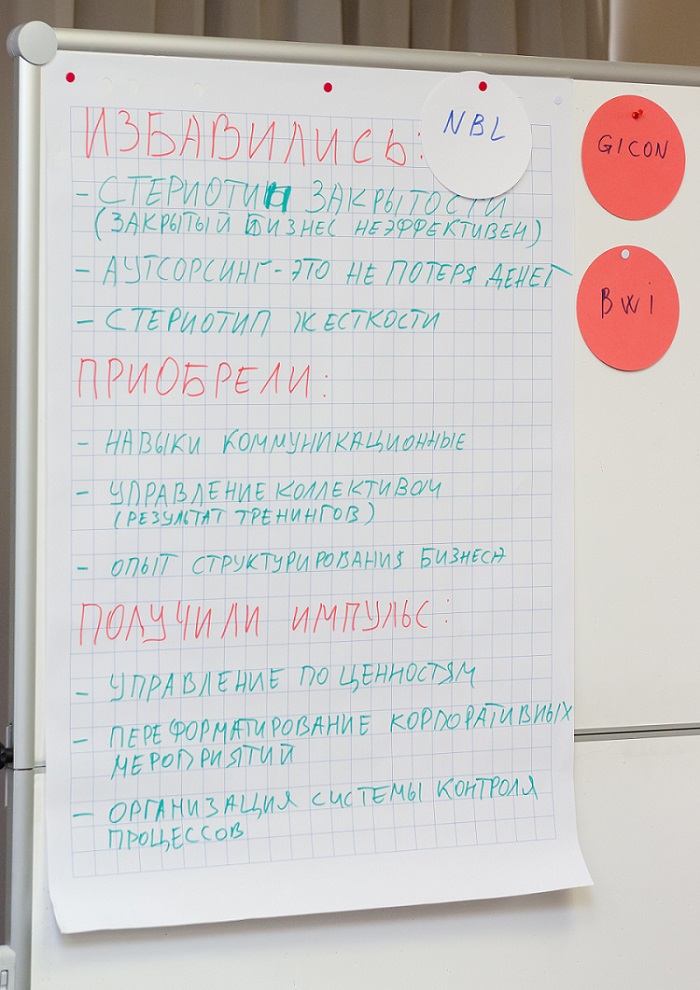 ИЗБАВИЛИСЬ:
- СТЕРИОТИП ЗАКРЫТОСТИ
(ЗАКРЫТЫЙ БИЗНЕС НЕЭФФЕКТИВЕН)
- АУТСОРСИНГ - ЭТО НЕ ПОТЕРЯ ДЕНЕГ
- СТЕРИОТИП ЖЕСТКОСТИ
ПРИОБРЕЛИ:
- НАВЫКИ КОММУНИКАЦИОННЫЕ
- УПРАВЛЕНИЕ КОЛЛЕКТИВОМ
(РЕЗУЛЬТАТ ТРЕНИНГОВ)
- ОПЫТ СТРУКТУРИРОВАНИЯ БИЗНЕСА
ПОЛУЧИЛИ ИМПУЛЬС:
- УПРАВЛЕНИЕ ПО ЦЕННОСТЯМ
- ПЕРЕФОРМАТИРОВАНИЕ КОРПОРАТИВНЫХ
МЕРОПРИЯТИЙ
- ОРГАНИЗАЦИЯ СИСТЕМЫ КОНТРОЛЯ
ПРОЦЕССОВ
NBL
GICON
BWi